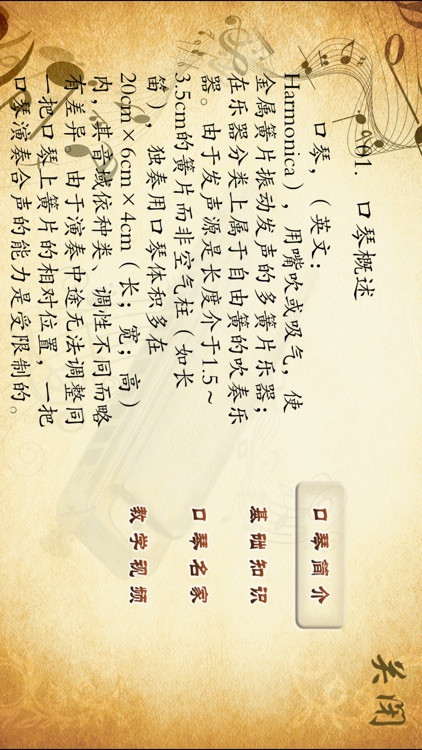 01. 口琴概述
口琴，（英文：
Harmonica），用嘴吹或吸气，使
金属簧片振动发声的多簧片乐器；
在乐器分类上属于自由簧的吹奏乐
器。由于发声源是长度介于1.5～
3.5cm的簧片而非空气柱（如长
笛），独奏用口琴体积多在
20cm×6cm×4cm（长；宽；高）
内，其音域依种类、调性不同而略
有差异。由于演奏中途无法调整同
一把口琴上簧片的相对位置，一把
口琴演奏合声的能力是受限制的。
口琴简介
基础知识
口琴名家
教学视频
关闭